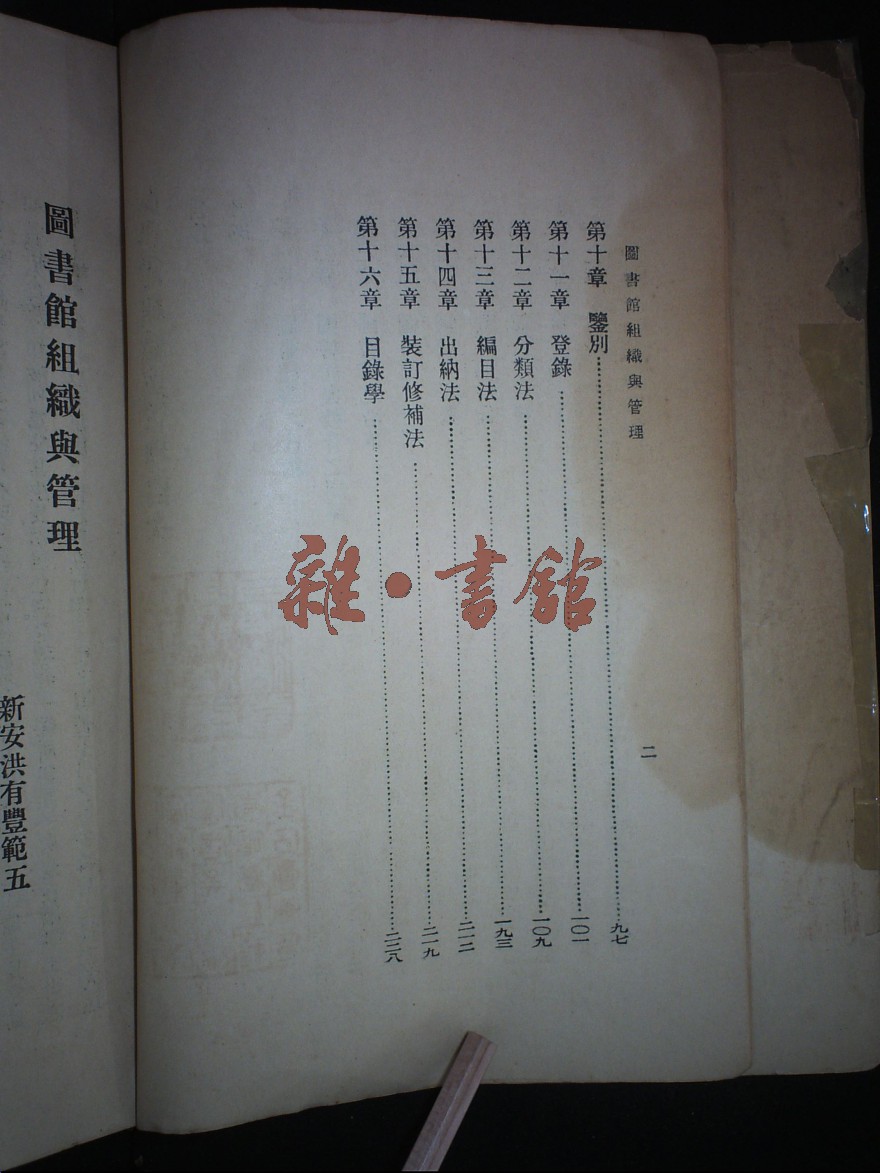 圖書館組織與管理
二
第十章 鑒別………九七
第十一章 登錄………一〇一
第十二章 分類法………一〇九
第十三章 編目法………一九三
第十四章 出納法………二一二
第十五章 裝訂修補法………二一九
第十六章 目錄學………二二八
圖書館組織與管理
新安洪有豐範五
雜·書館